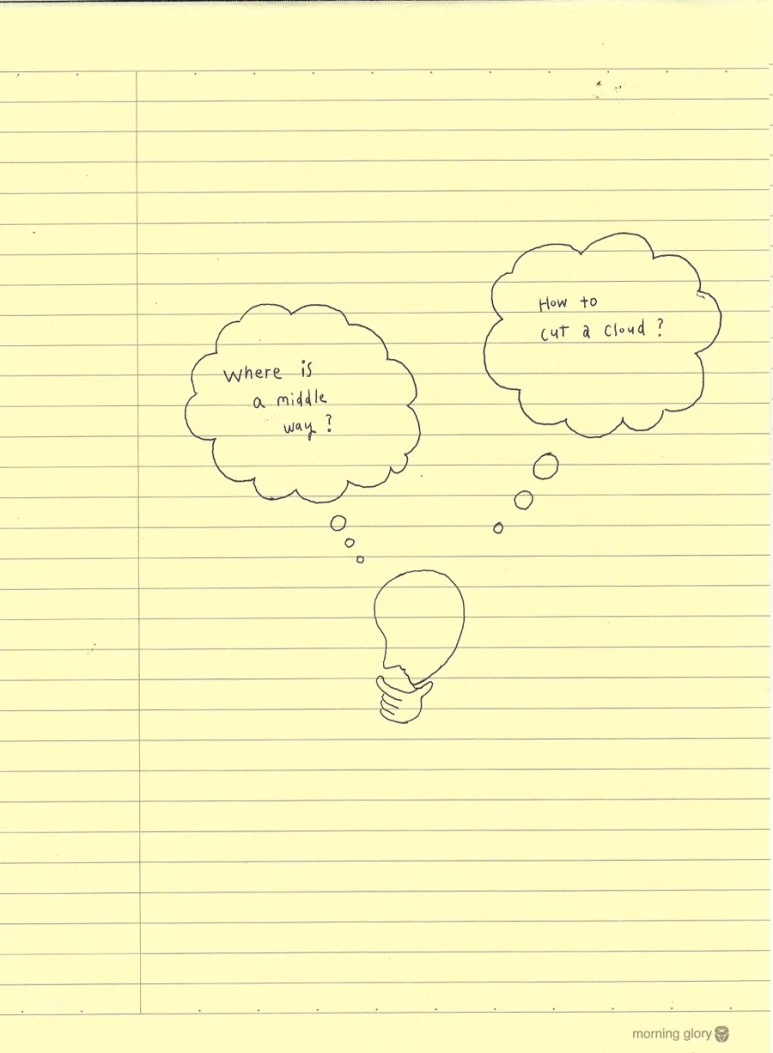 Where is
a middle
way?
How to
cut a cloud?
morning glory